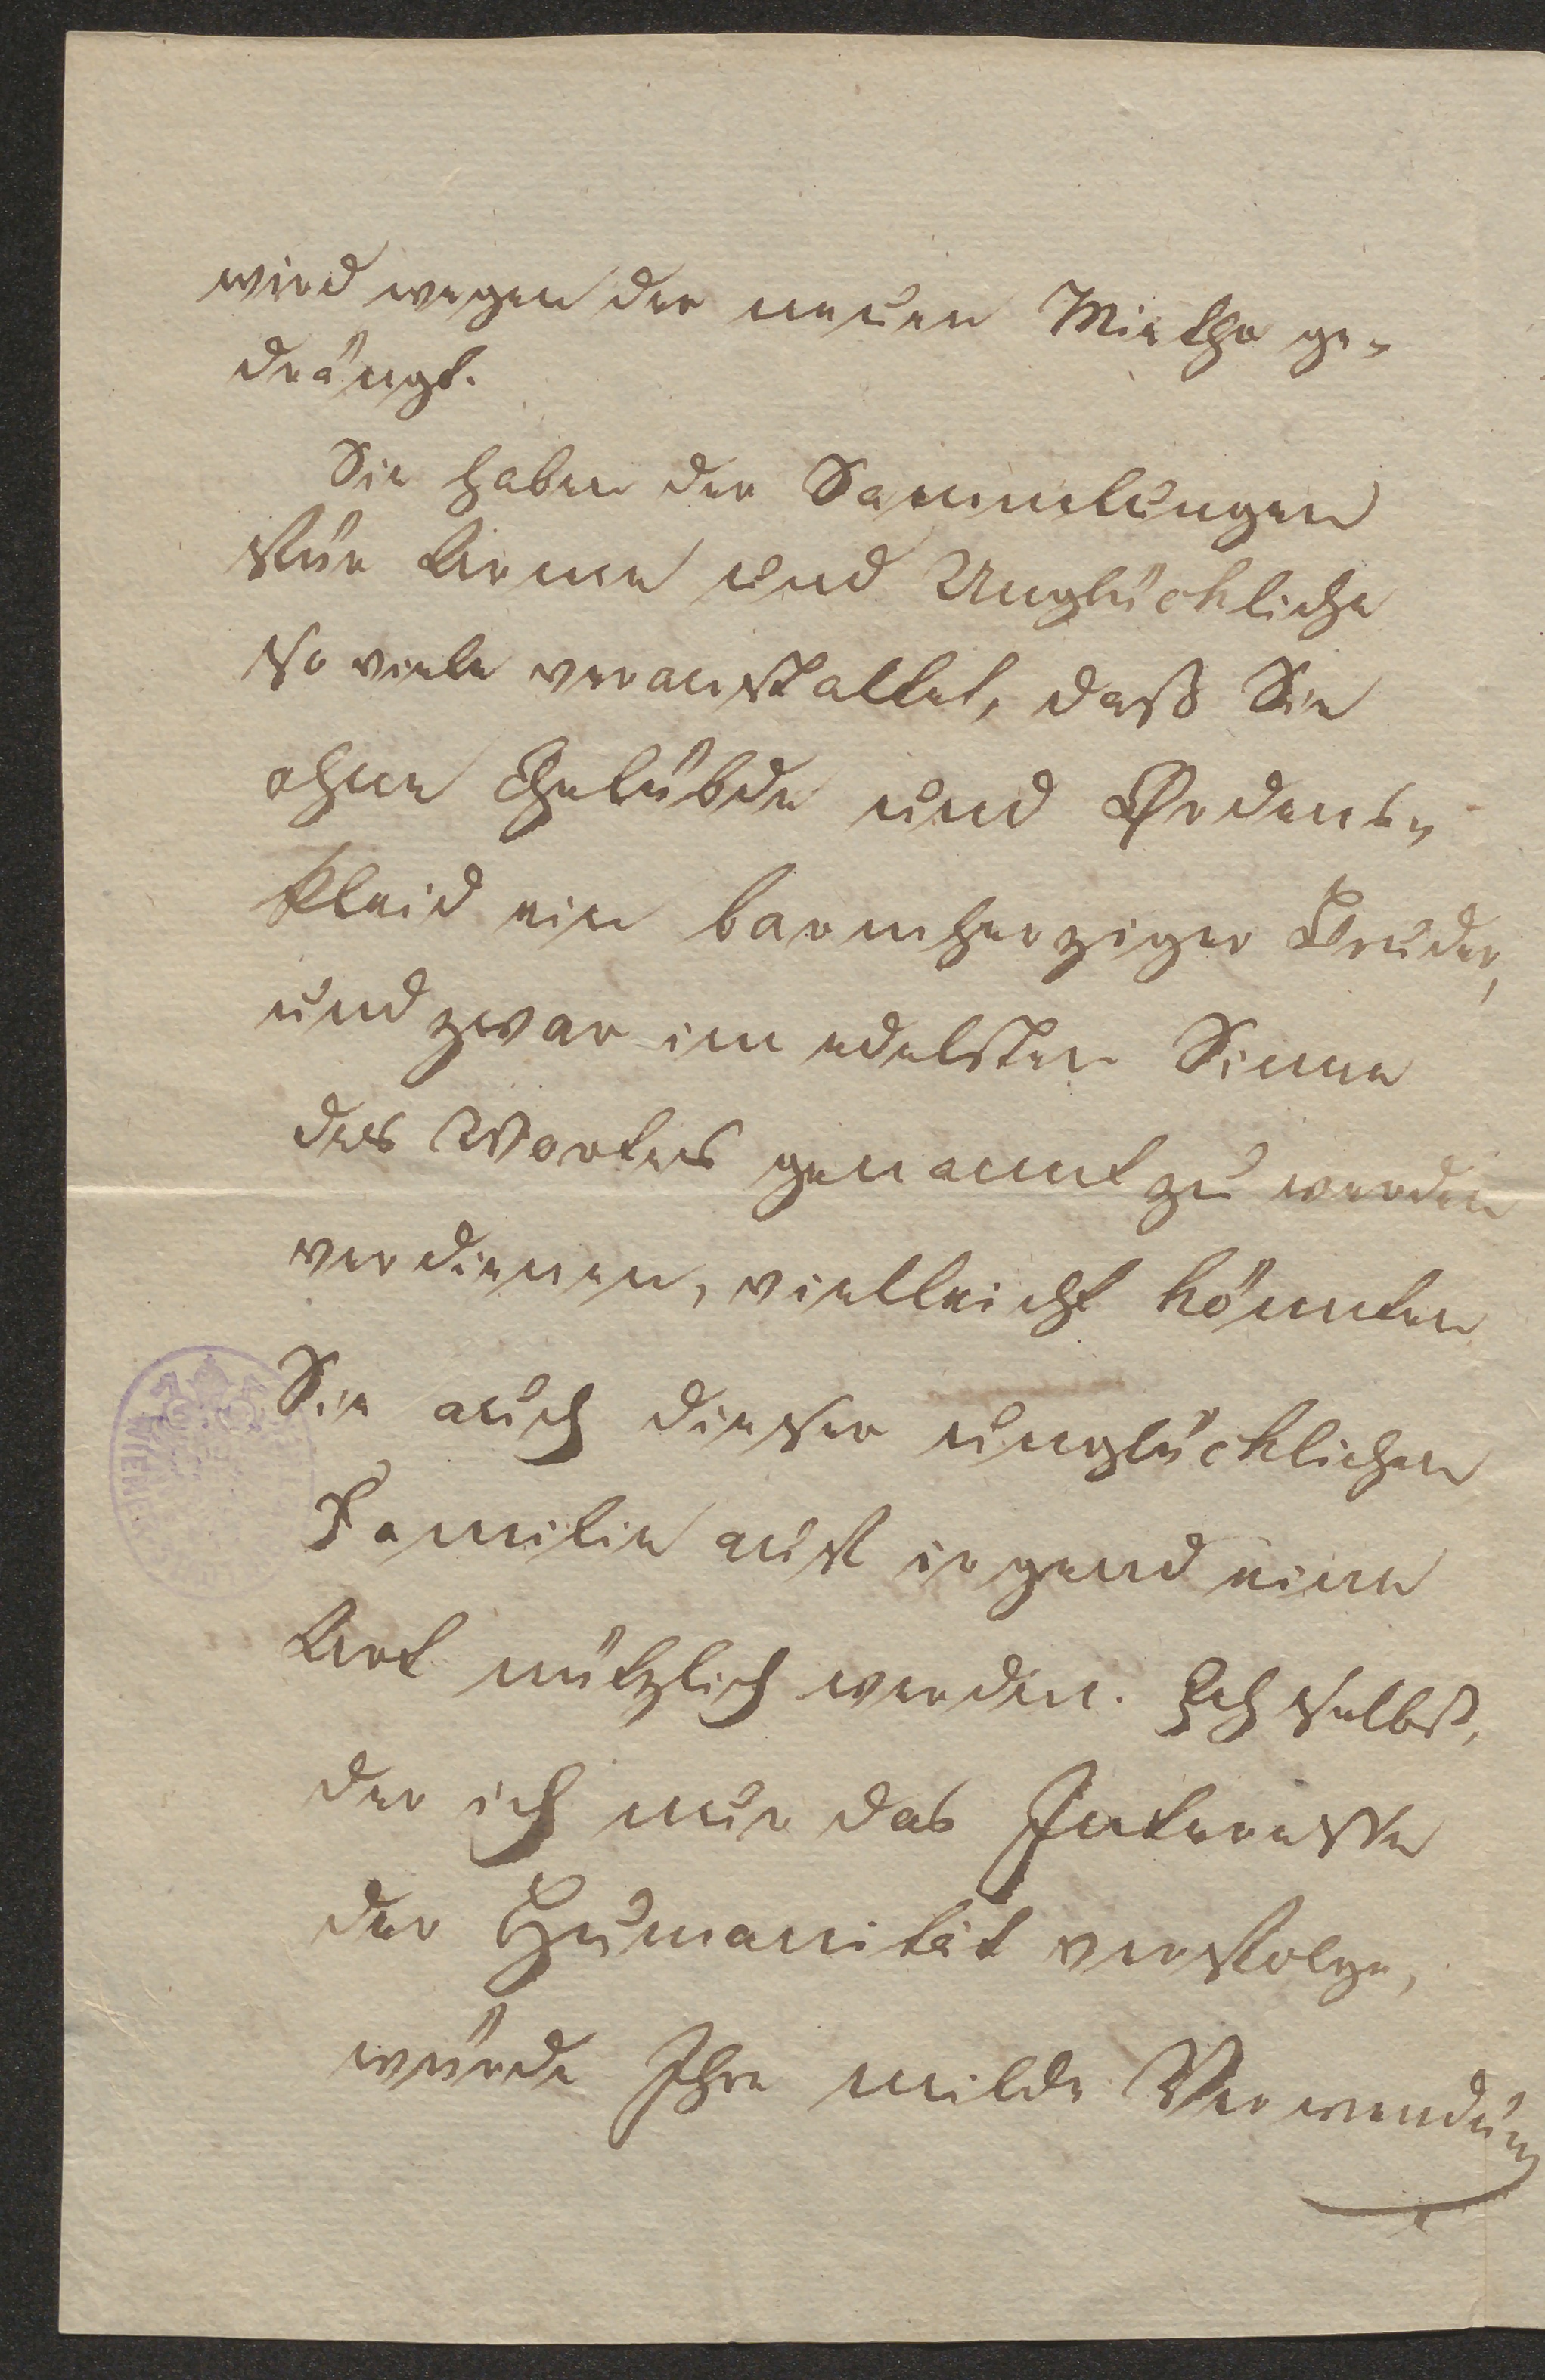 wird wegen der neuen Miethe ge-
drängt.
Sie haben der Sammlungen
für Arme und Unglückliche
so viele veranstaltet, daß Sie
ohne Gelübde und Ordens-
kleid ein barmherziger Bruder,
und zwar im edelsten Sinne
des Wortes genannt zu werden
verdienen, vielleicht könnten
Sie auch dieser unglücklichen
Familie auf irgend eine
Art nützlich werden. Ich selbst,
der ich nur das Interesse
der Humanität verfolge,
würde Ihre milde Verwendung
WIEN